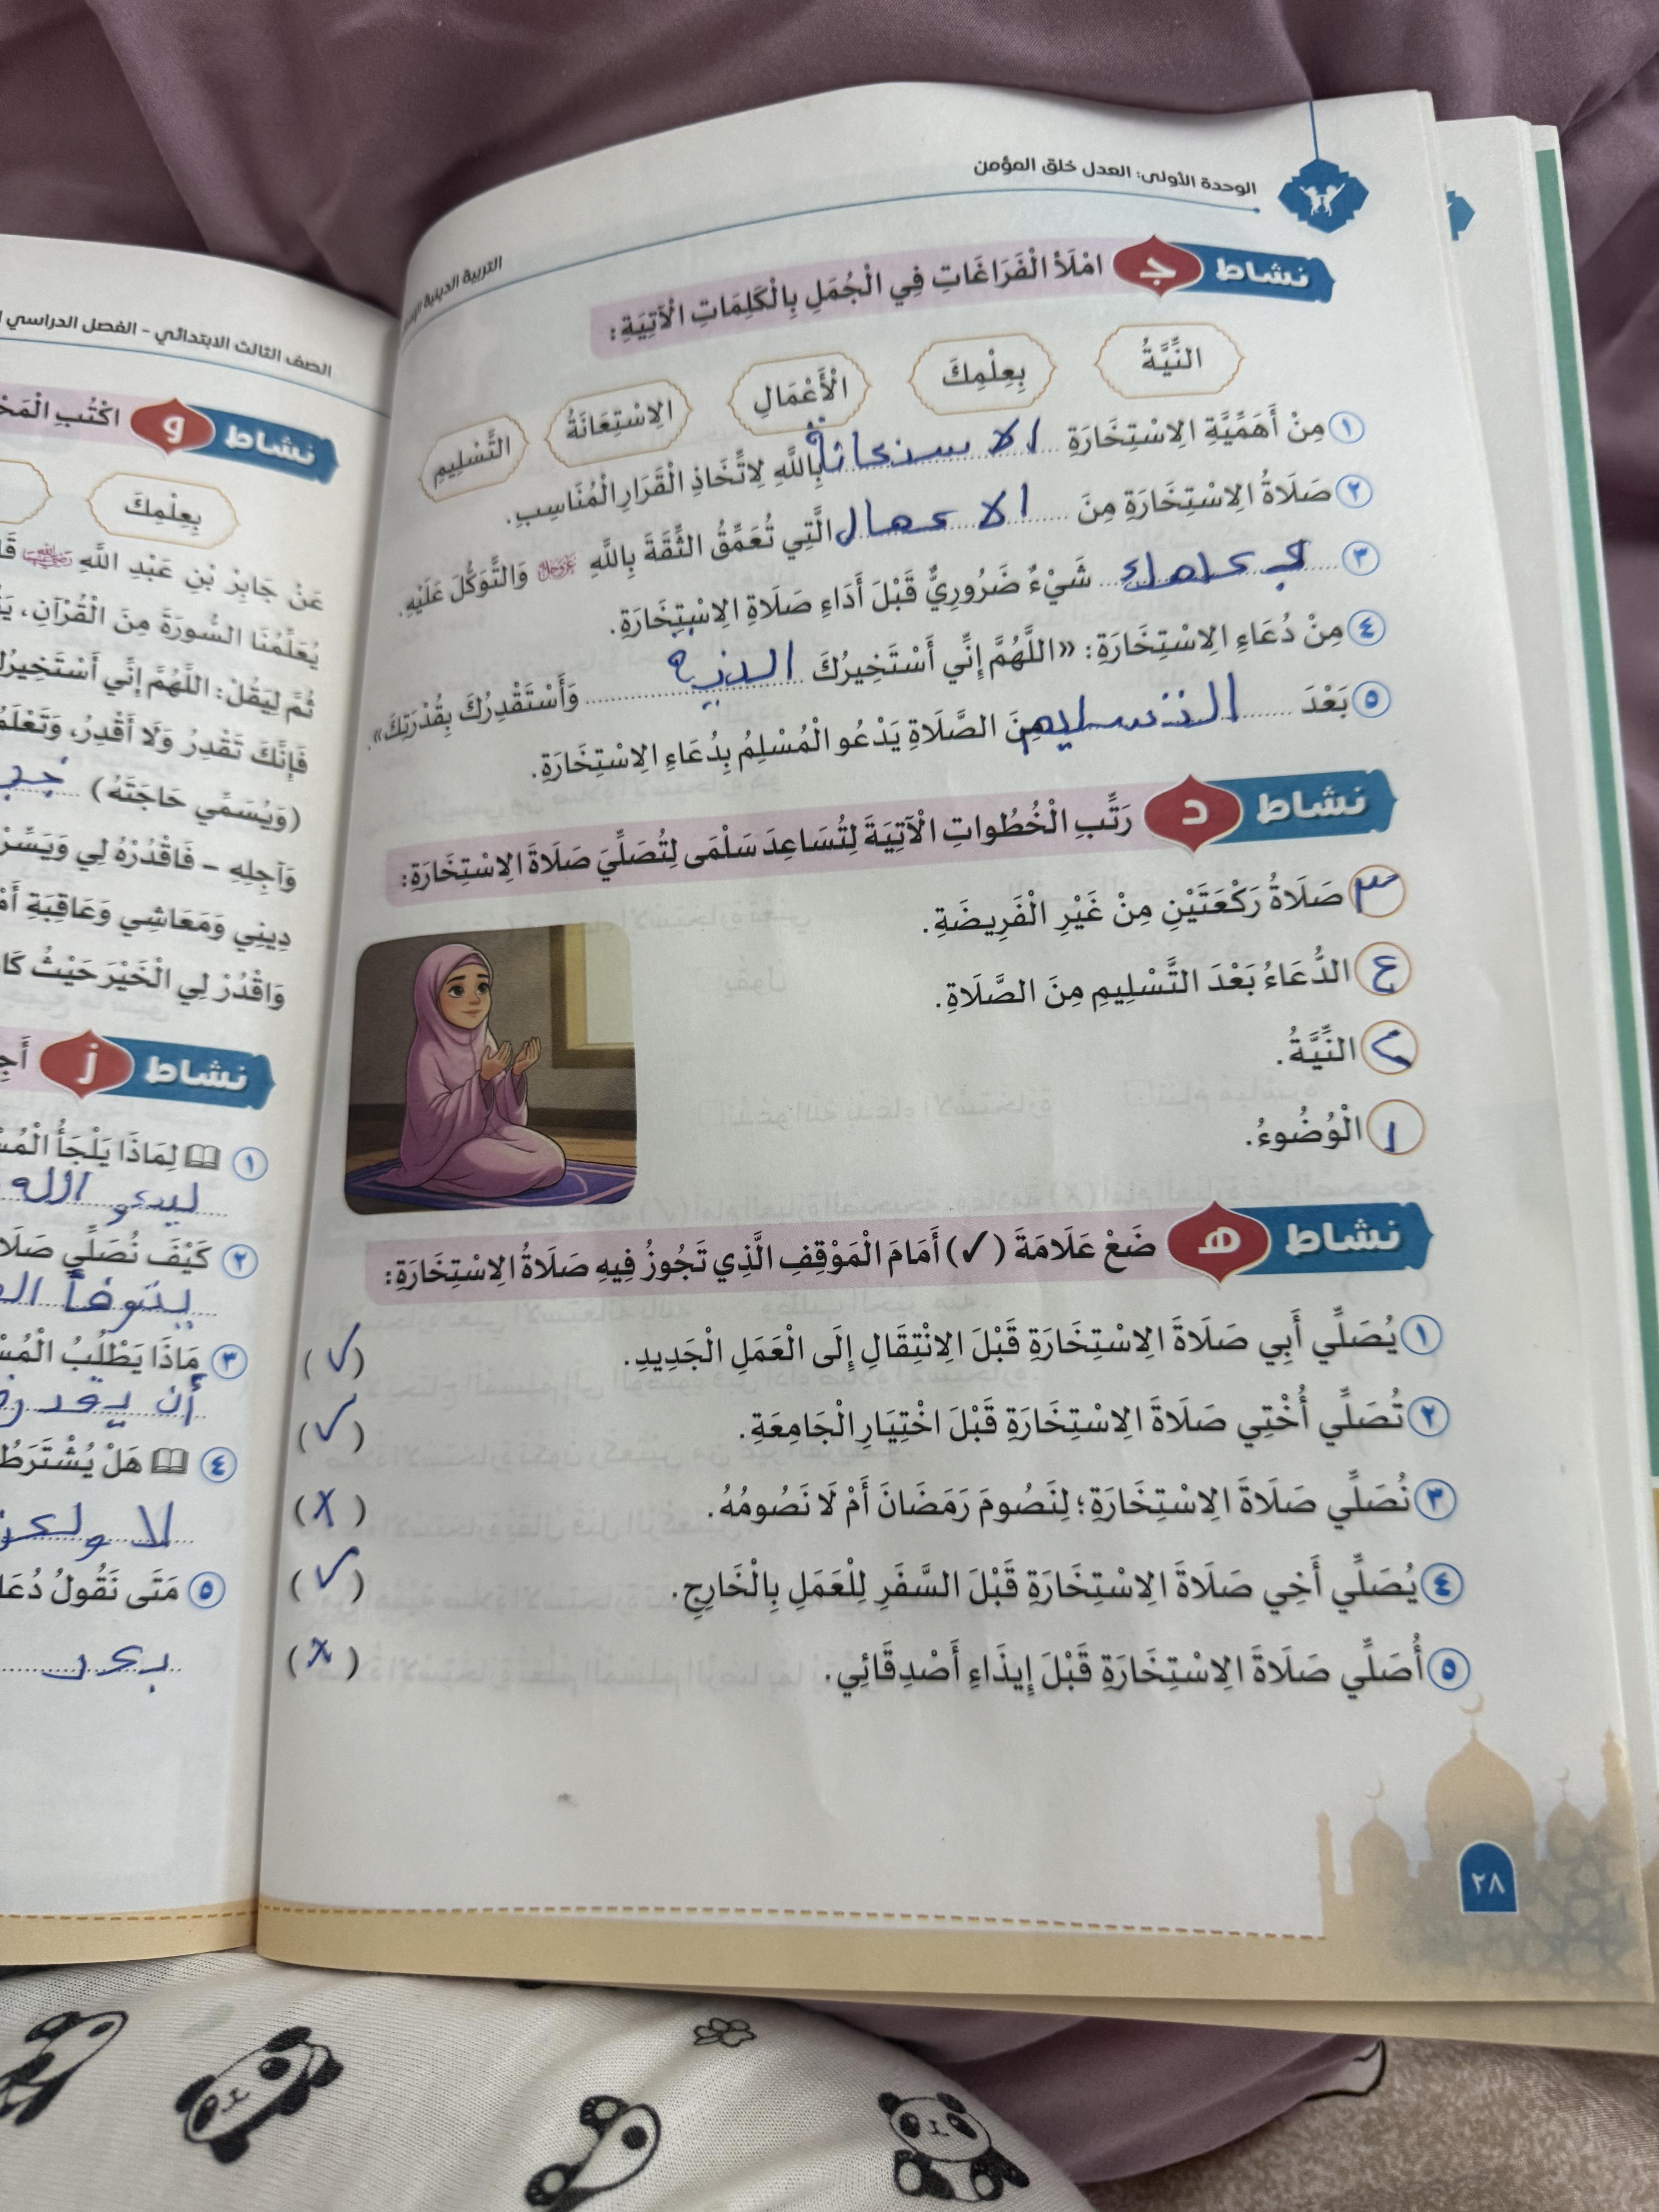 الوحدة الأولى: العدل خلق المؤمن
التربية الدينية
نشاط ج امْلَأْ الْفَرَاغَاتِ فِي الْجُمَلِ بِالْكَلِمَاتِ الْآتِيَةِ:
النِّيَّةُ
بِعِلْمِكَ
الْأَعْمَالِ
الِاسْتِعَانَةُ
التَّسْلِيمِ
١ مِنْ أَهَمِّيَّةِ الِاسْتِخَارَةِ الاستعانة بِاللَّهِ لِاتِّخَاذِ الْقَرَارِ الْمُنَاسِبِ.
٢ صَلَاةُ الِاسْتِخَارَةِ مِنَ الاعمال الَّتِي تُعَمِّقُ الثِّقَةَ بِاللَّهِ عَزَّ وَجَلَّ وَالتَّوَكُّلَ عَلَيْهِ.
٣ بعلمك شَيْءٌ ضَرُورِيٌّ قَبْلَ أَدَاءِ صَلَاةِ الِاسْتِخَارَةِ.
٤ مِنْ دُعَاءِ الِاسْتِخَارَةِ: «اللَّهُمَّ إِنِّي أَسْتَخِيرُكَ النية وَأَسْتَقْدِرُكَ بِقُدْرَتِكَ».
٥ بَعْدَ التسليم مِنَ الصَّلَاةِ يَدْعُو الْمُسْلِمُ بِدُعَاءِ الِاسْتِخَارَةِ.
نشاط د رَتِّبِ الْخُطُواتِ الْآتِيَةَ لِتُسَاعِدَ سَلْمَى لِتُصَلِّيَ صَلَاةَ الِاسْتِخَارَةِ:
٣ صَلَاةُ رَكْعَتَيْنِ مِنْ غَيْرِ الْفَرِيضَةِ.
٤ الدُّعَاءُ بَعْدَ التَّسْلِيمِ مِنَ الصَّلَاةِ.
٢ النِّيَّةُ.
١ الْوُضُوءُ.
نشاط هـ ضَعْ عَلَامَةَ (✓) أَمَامَ الْمَوْقِفِ الَّذِي تَجُوزُ فِيهِ صَلَاةُ الِاسْتِخَارَةِ:
١ يُصَلِّي أَبِي صَلَاةَ الِاسْتِخَارَةِ قَبْلَ الِانْتِقَالِ إِلَى الْعَمَلِ الْجَدِيدِ. (✓)
٢ تُصَلِّي أُخْتِي صَلَاةَ الِاسْتِخَارَةِ قَبْلَ اخْتِيَارِ الْجَامِعَةِ. (✓)
٣ نُصَلِّي صَلَاةَ الِاسْتِخَارَةِ؛ لِنَصُومَ رَمَضَانَ أَمْ لَا نَصُومُهُ. (x)
٤ يُصَلِّي أَخِي صَلَاةَ الِاسْتِخَارَةِ قَبْلَ السَّفَرِ لِلْعَمَلِ بِالْخَارِجِ. (✓)
٥ أُصَلِّي صَلَاةَ الِاسْتِخَارَةِ قَبْلَ إِيذَاءِ أَصْدِقَائِي. (x)
٢٨
الصف الثالث الابتدائي - الفصل الدراسي
نشاط و اكْتُبِ
بِعِلْمِكَ
عَنْ جَابِرْ بْنِ عَبْدِ اللَّهِ
يُعَلِّمُنَا السُّورَةَ مِنَ الْقُرْآنِ،
ثُمَّ لِيَقُلْ: اللَّهُمَّ إِنِّي أَسْتَخِيرُكَ
فَإِنَّكَ تَقْدِرُ وَلَا أَقْدِرُ، وَتَعْلَمُ
(وَيُسَمِّي حَاجَتَهُ)
وَآجِلِهِ - فَاقْدُرْهُ لِي وَيَسِّرْ
دِينِي وَمَعَاشِي وَعَاقِبَةِ
وَاقْدُرْ لِي الْخَيْرَ حَيْثُ
نشاط ز
١ لِمَاذَا يَلْجَأُ
ليدعو الله
٢ كَيْفَ نُصَلِّي
يتوضأ
٣ مَاذَا يَطْلُبُ
أن يقدر
٤ هَلْ يُشْتَرَطُ
لا ولكن
٥ مَتَى نَقُولُ
بعد